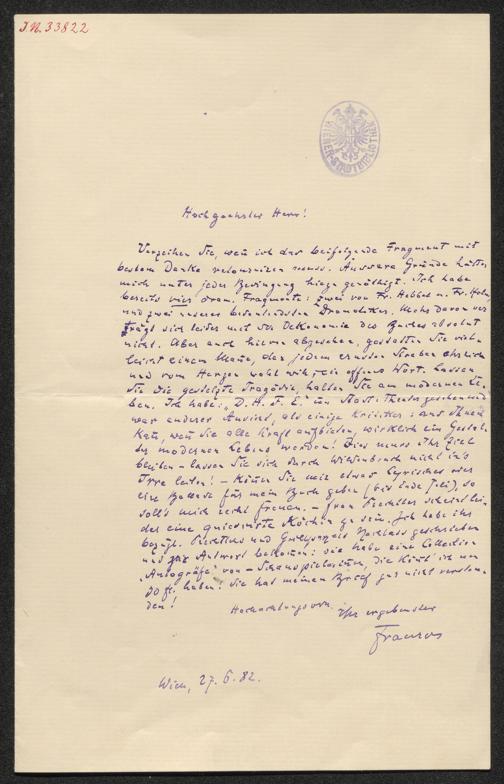 I.N. 33822
WIENER-STADTBIBLIOTHEK
Hochgeehrter Herr!
Verzeihen Sie, wenn ich das beifolgende Fragment mit
bestem Danke retourniren muss. Äussere Gründe hätten
mich unter jeder Bedingung hiezu genöthigt. Ich habe
bereits vier dram. Fragmente: zwei von Fr. Hebbel u. Fr. Halm,
und zwei unserer bedeutendsten Dramatiker. Mehr davon ver-
trägt sich leider mit der Oekonomie des Buches absolut
nicht. Aber auch hievon abgesehen, gestatten Sie viel-
leicht einem Manne, der jedem ernsten Streben ehrlich
und vom Herzen wohl will, ein offenes Wort. Lassen
Sie die gestelzte Tragödie, halten Sie am modernen Le-
ben. Ich habe „D. H. F. L." im Stadt-Theater gesehen und
war anderer Ansicht, als einige Kritiker: aus Ihnen
kann, wenn Sie alle Kraft aufbieten, wirklich ein Gestal-
ter modernen Lebens werden! Dies muss Ihr Ziel
bleiben – lassen Sie sich durch Wildenbruch nicht in's
Irre leiten! – Können Sie mir etwas Lyrisches oder
eine Ballade für mein Buch geben (bis Ende Juli), so
soll's mich recht freuen. – Frau scheint lei-
der eine Köchin zu sein. Ich habe ihr
bezügl. Nachlass geschrieben
und zur Antwort bekommen: sie habe eine Collection
„Autografe" von – Schauspielerinnen, die könnt' ich um
50 fl. haben! Sie hat meinen Brief gar nicht verstan-
den!
Hochachtungsvoll Ihr ergebenster
Franzos
Wien, 27. 6. 82.